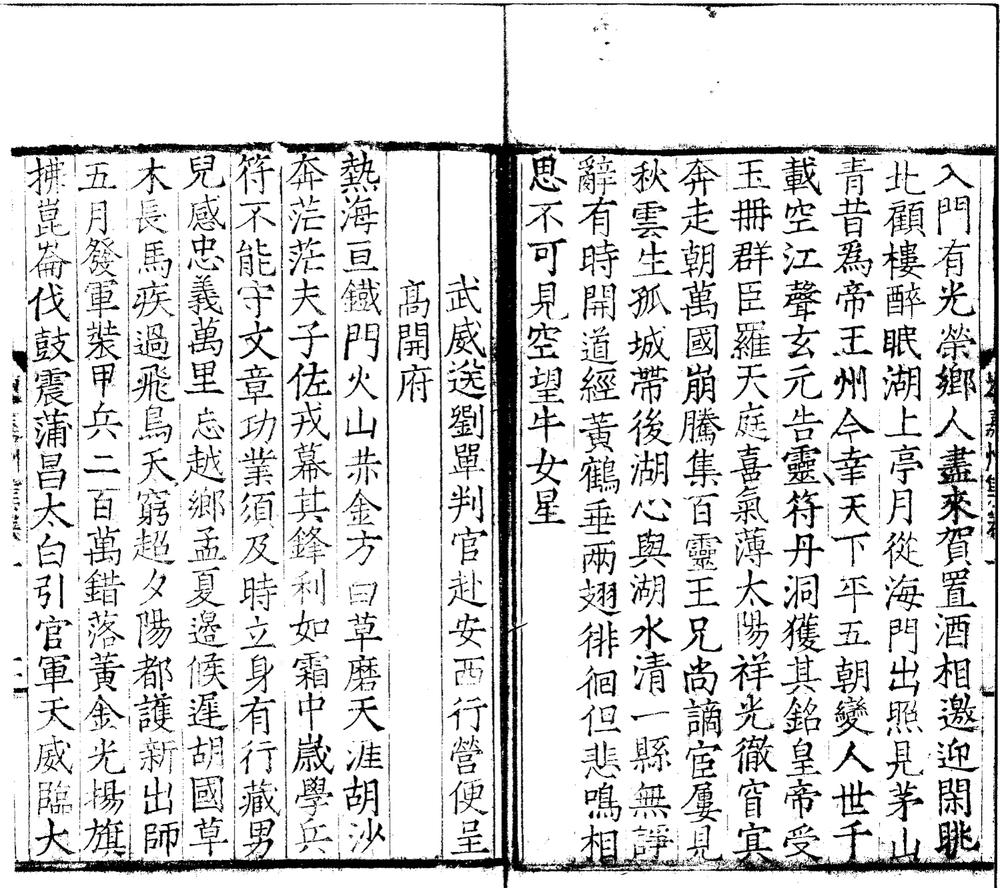 入門有光榮鄉人盡來賀置酒相邀迎閑眺
北顧樓醉眠湖上亭月從海門出照見茅山
青昔爲帝王州今幸天下平五朝變人世千
載空江聲玄元告靈符丹洞獲其銘皇帝受
玉冊群臣羅天庭喜氣薄太陽祥光徹窅冥
奔走朝萬國崩騰集百靈王兄尚謫宦屢見
秋雲生孤城帶後湖心與湖水清一縣無諍
辭有時開道經黃鶴垂兩翅徘徊但悲鳴相
思不可見空望牛女星
武威送劉單判官赴安西行營便呈
髙開府
熱海亘鐵門火山赤金方白草磨天涯胡沙
奔茫茫夫子佐戎幕其鋒利如霜中歲學兵
符不能守文章功業須及時立身有行藏男
兒感忠義萬里忘越鄉孟夏邊候遲胡國草
木長馬疾過飛鳥天窮超夕陽都護新出師
五月發軍裝甲兵二百萬錯落黃金光揚旗
拂崑崙伐鼓震蒲昌太白引官軍天威臨大